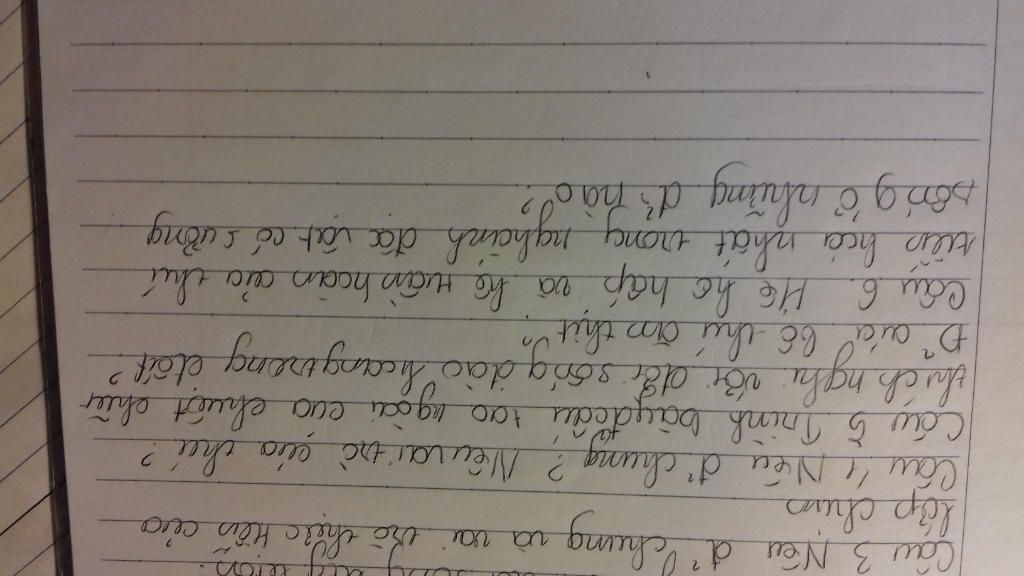 sống bay lượn.
Câu 3 Nêu đ² chung và vai trò thực tiễn của
lớp chim
Câu 4 Nêu đ² chung? Nêu vai trò của thú?
Câu 5 Trình bày đ² cấu tạo ngoài của chuột chũi
thích nghi với đời sống đào hang trong đất?
Đ² của bộ thú ăn thịt?
Câu 6 Hệ hô hấp và hệ tuần hoàn của thú
tiến hoá nhất trong nghành đv vật có xương
sống ở những đ² nào?